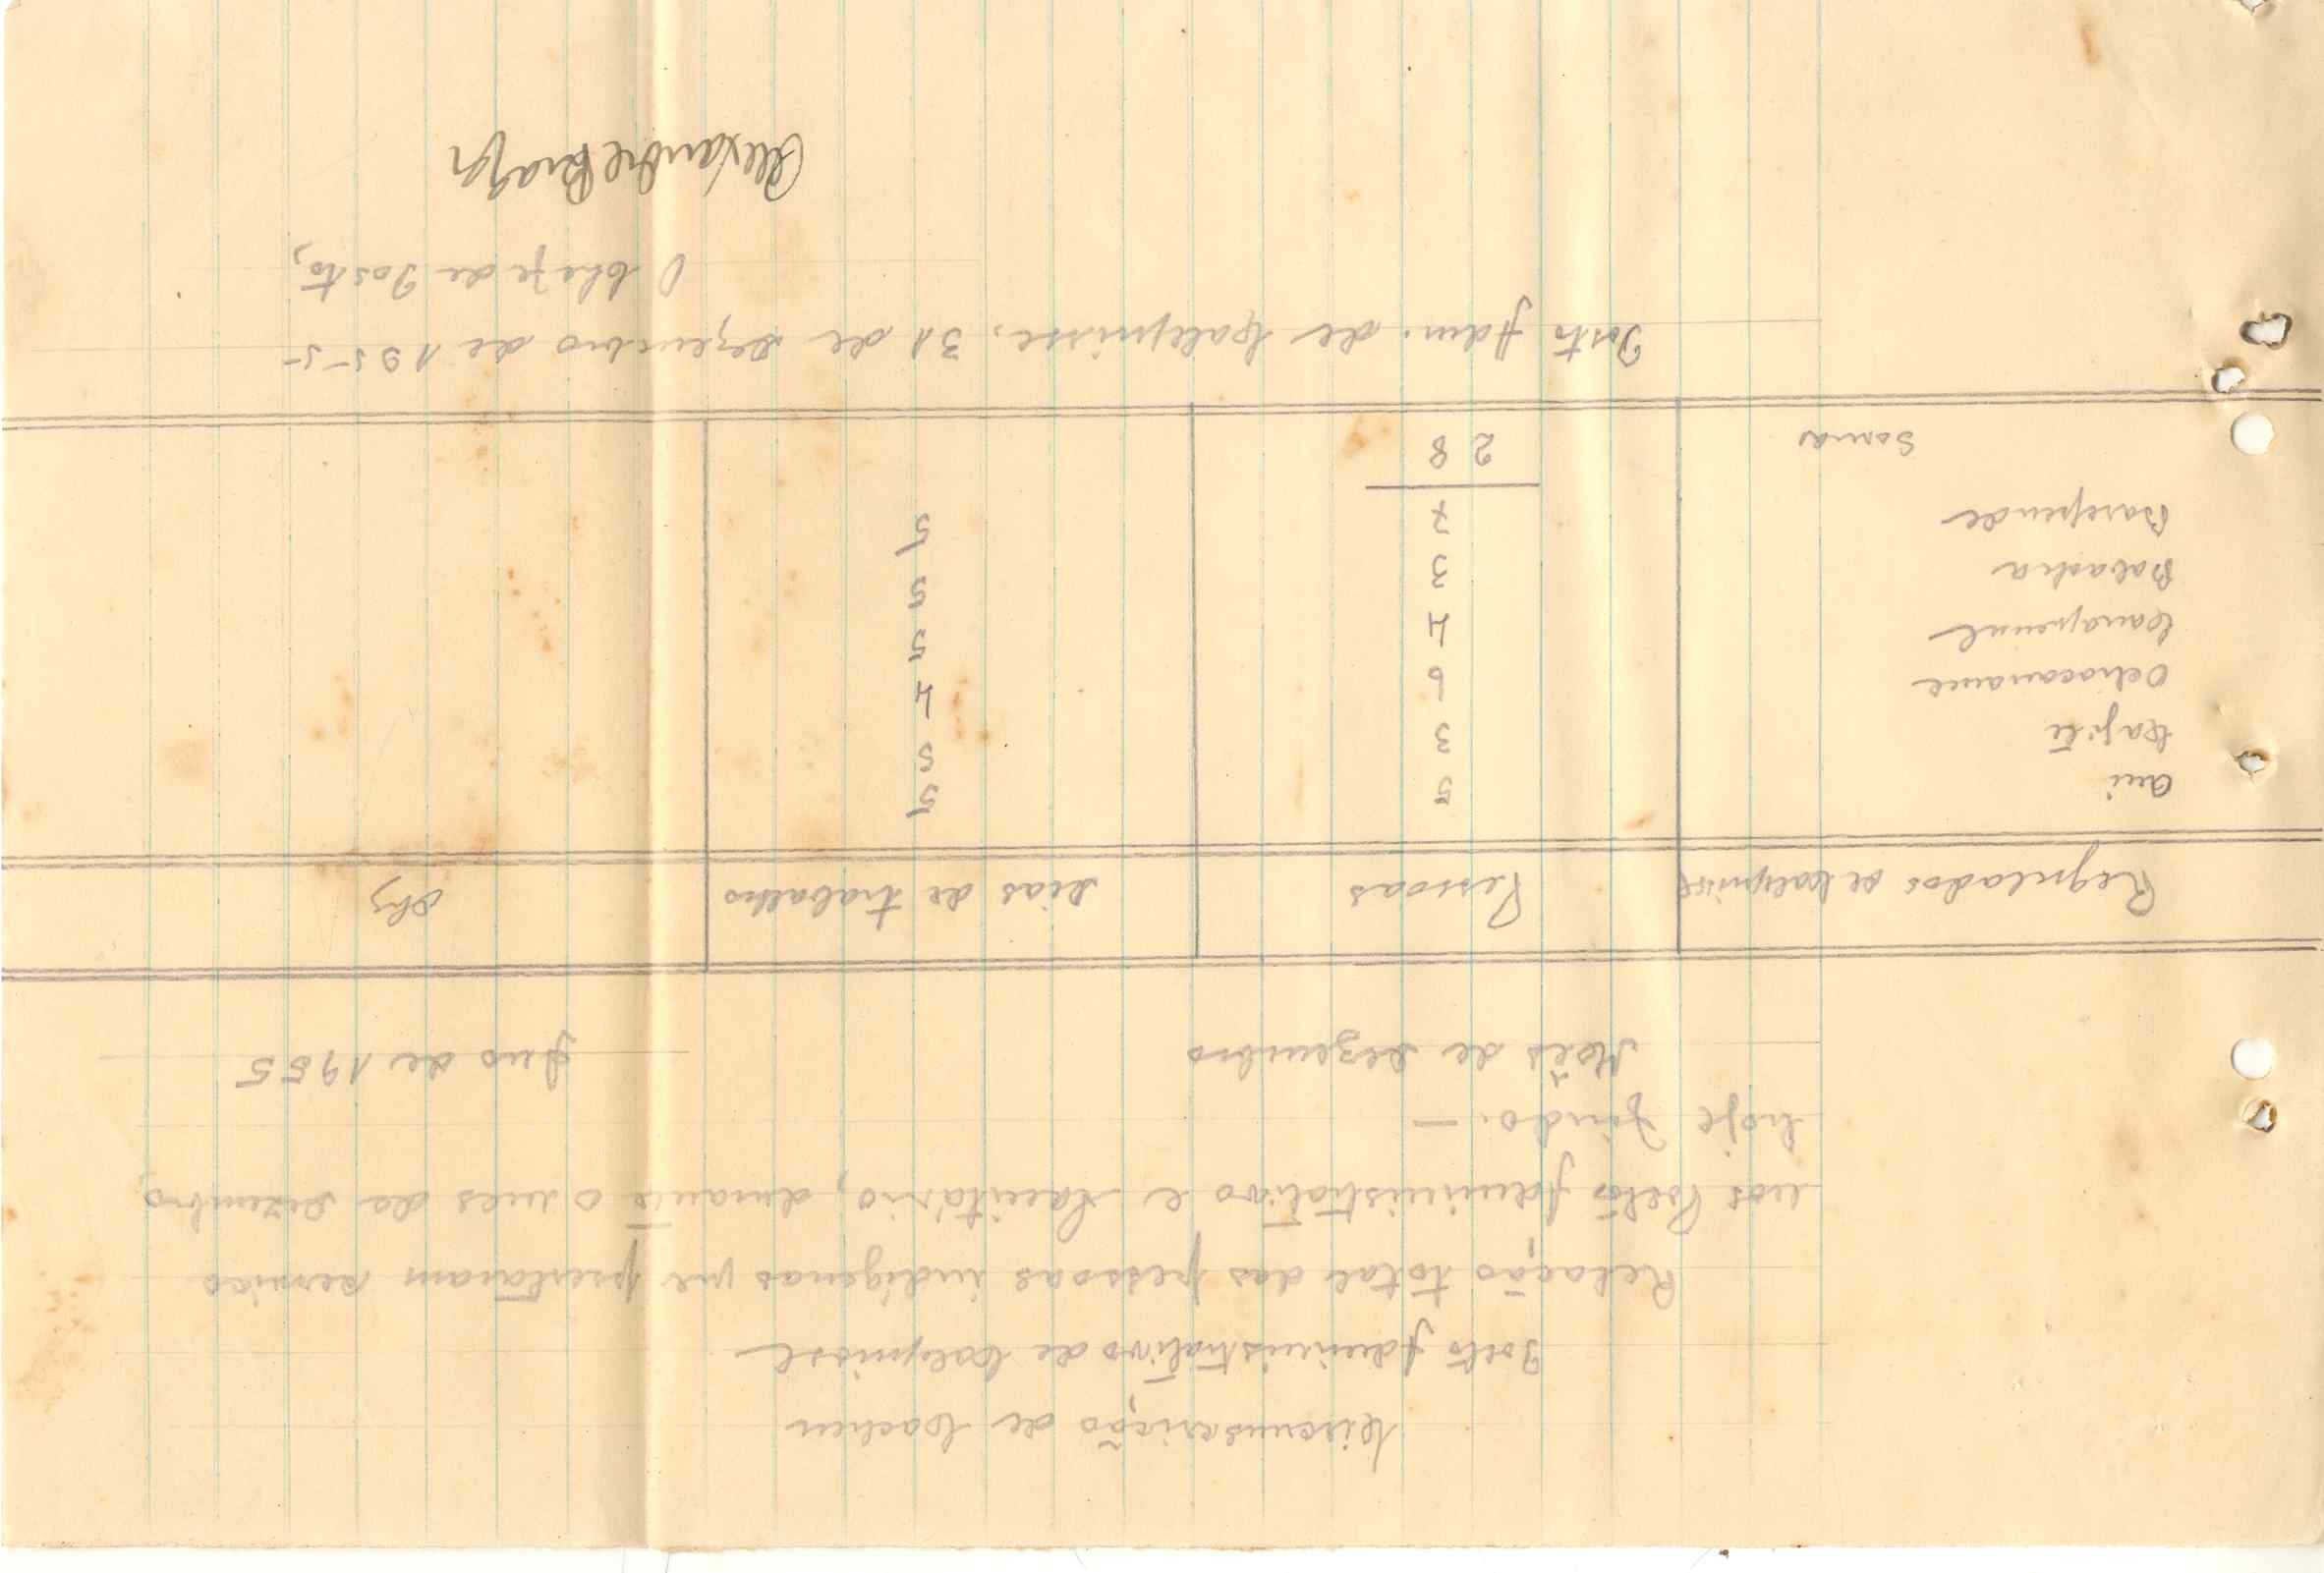 Circunscrição de Cacheu
Posto Administrativo de Calequisse
Relação total das pessoas indigenas que prestaram serviço
nos Posto Administrativo e Sanitário, durante o mes de Dezembro,
hoje findo. —
Mês de Dezembro Ano de 1955
Regulados de Calequisse Pessoas Dias de trabalho Obs
5 5
Cajete 3 5
6 4
4 5
3 5
7 5
Soma 28
Posto Adm. de Calequisse, 31 de Dezembro de 1955
O Chefe de Posto,
Alexandre